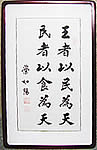 王者以民為天
民者以食為天